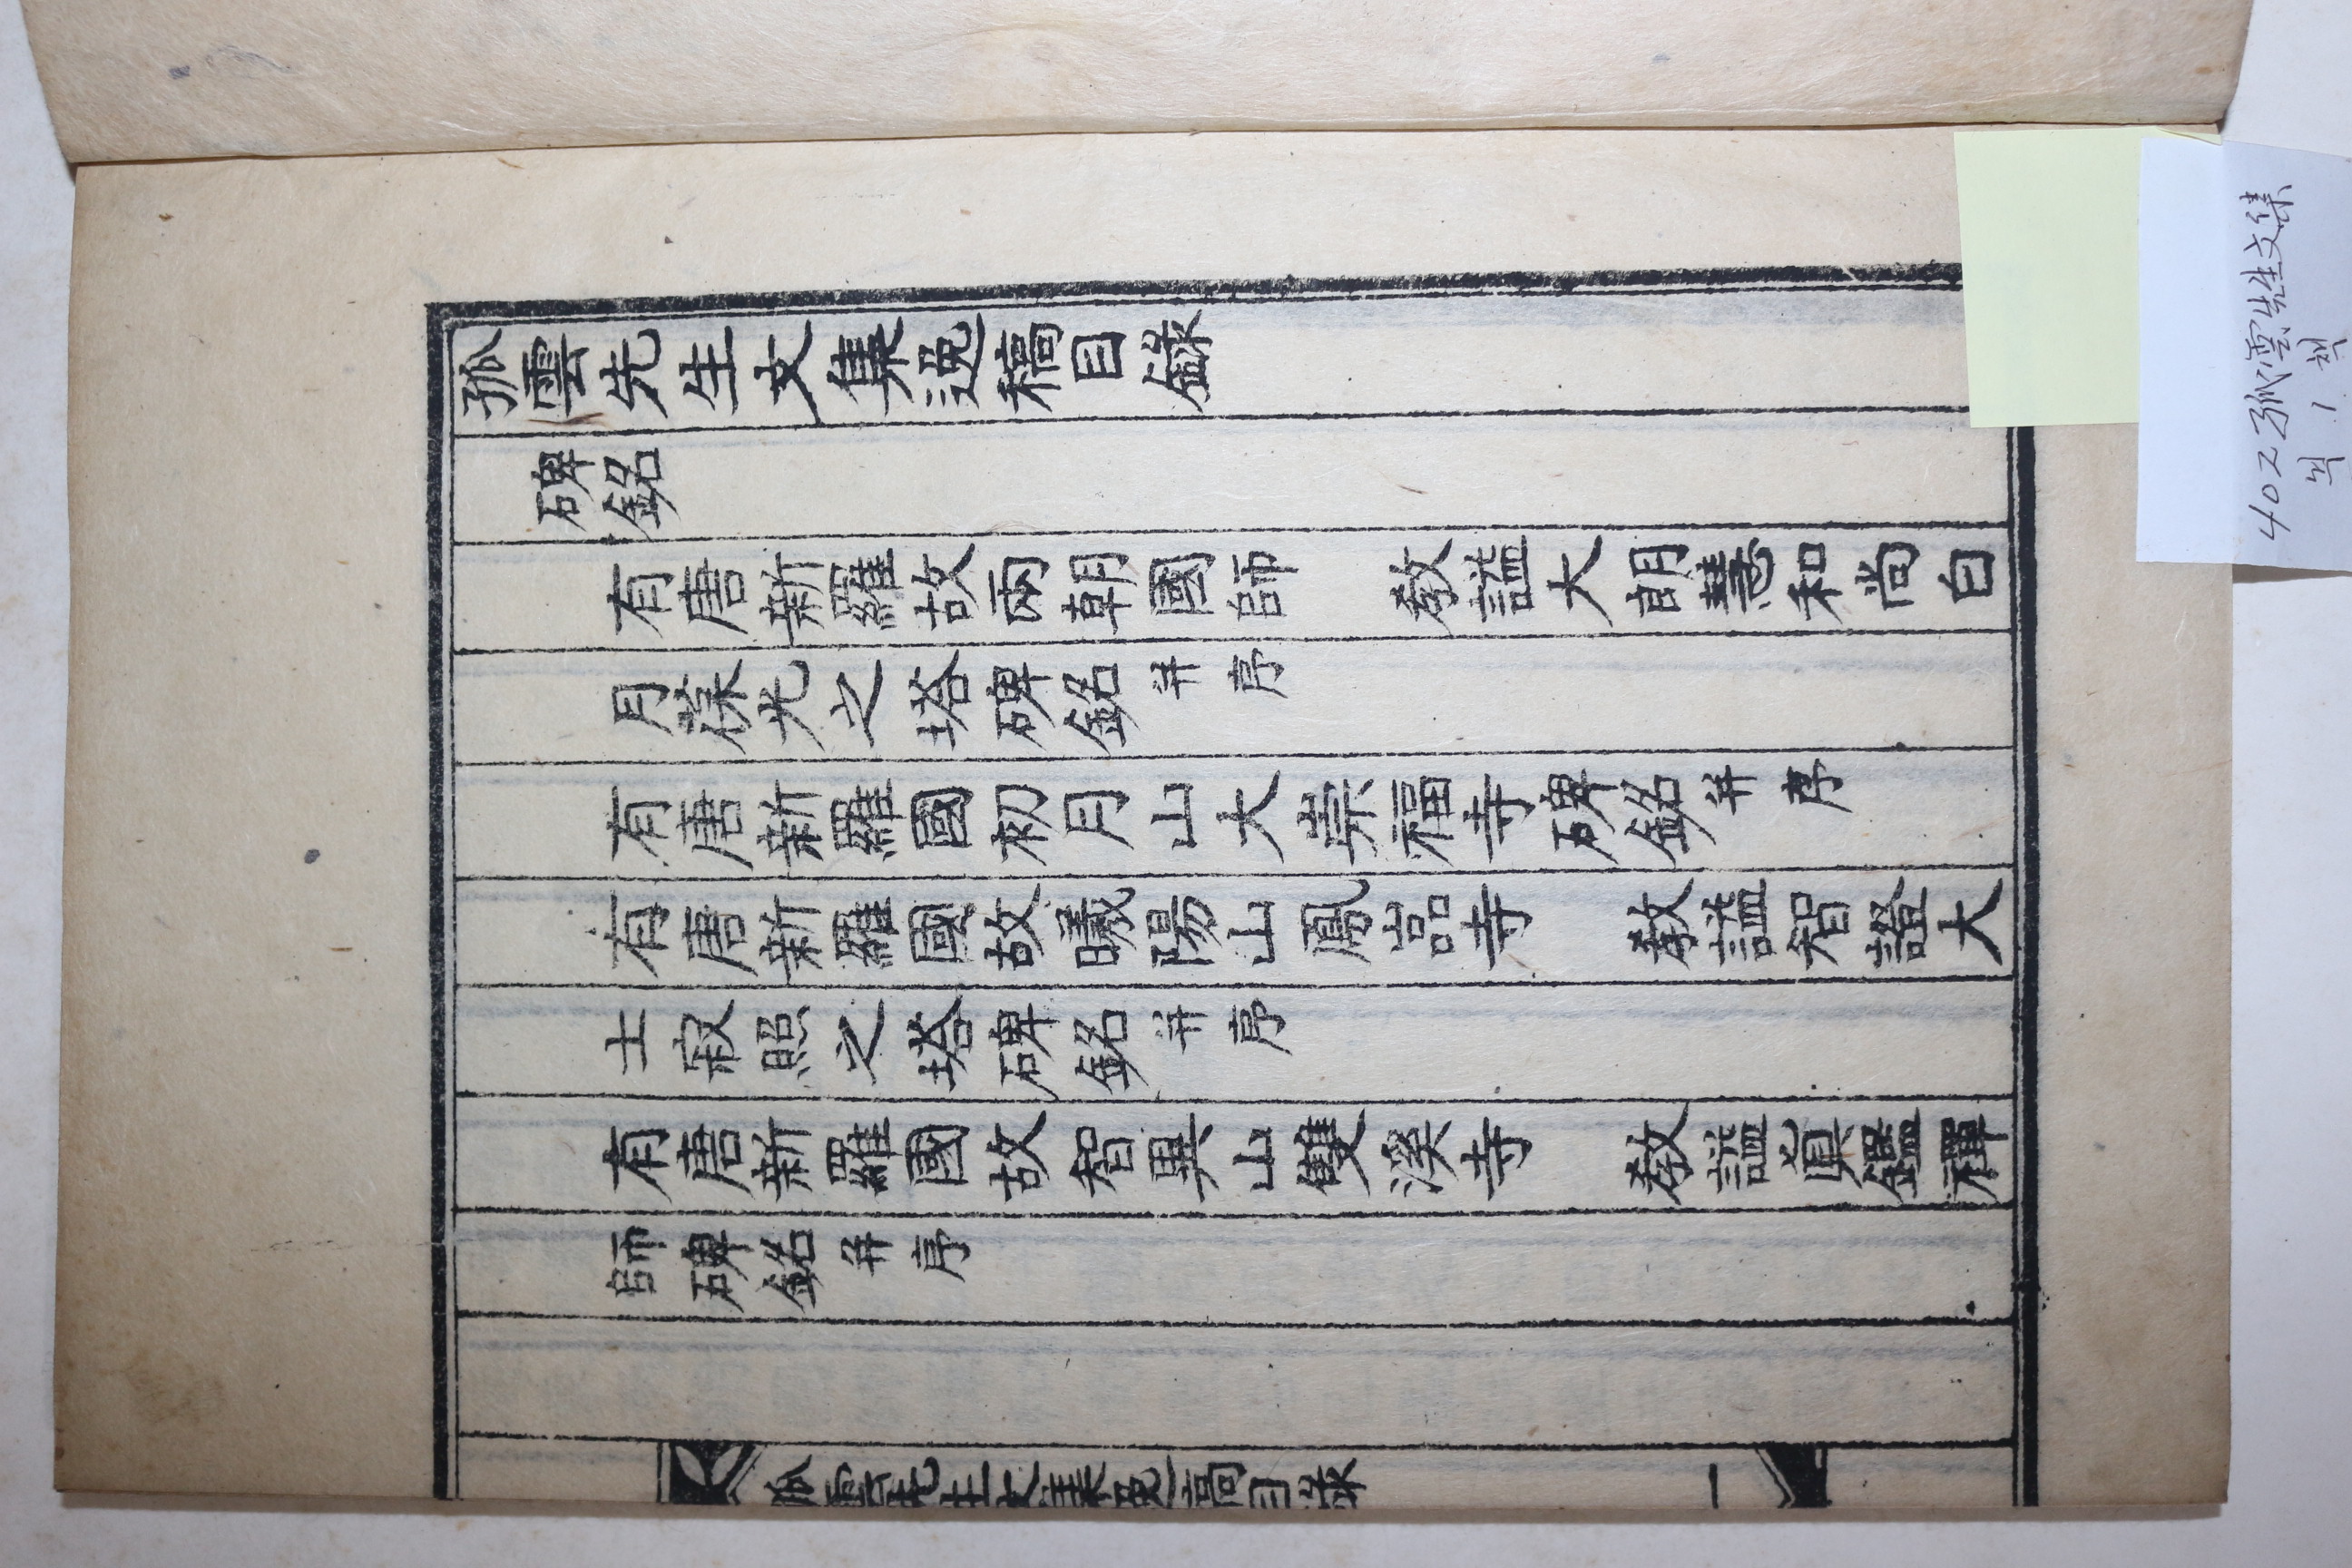 孤雲先生文集逸稿目錄
碑銘
有唐新羅故兩朝國師 敎謚大朗慧和尙白
月葆光之塔碑銘 并序
有唐新羅國初月山大崇福寺碑銘 并序
有唐新羅國故曦陽山鳳嵓寺 敎謚智證大
士寂照之塔碑銘 并序
有唐新羅國故智異山雙溪寺 敎謚眞鑑禪
師碑銘 并序
孤雲先生文集逸稿目錄 一
402 孤雲先生文集
1 책